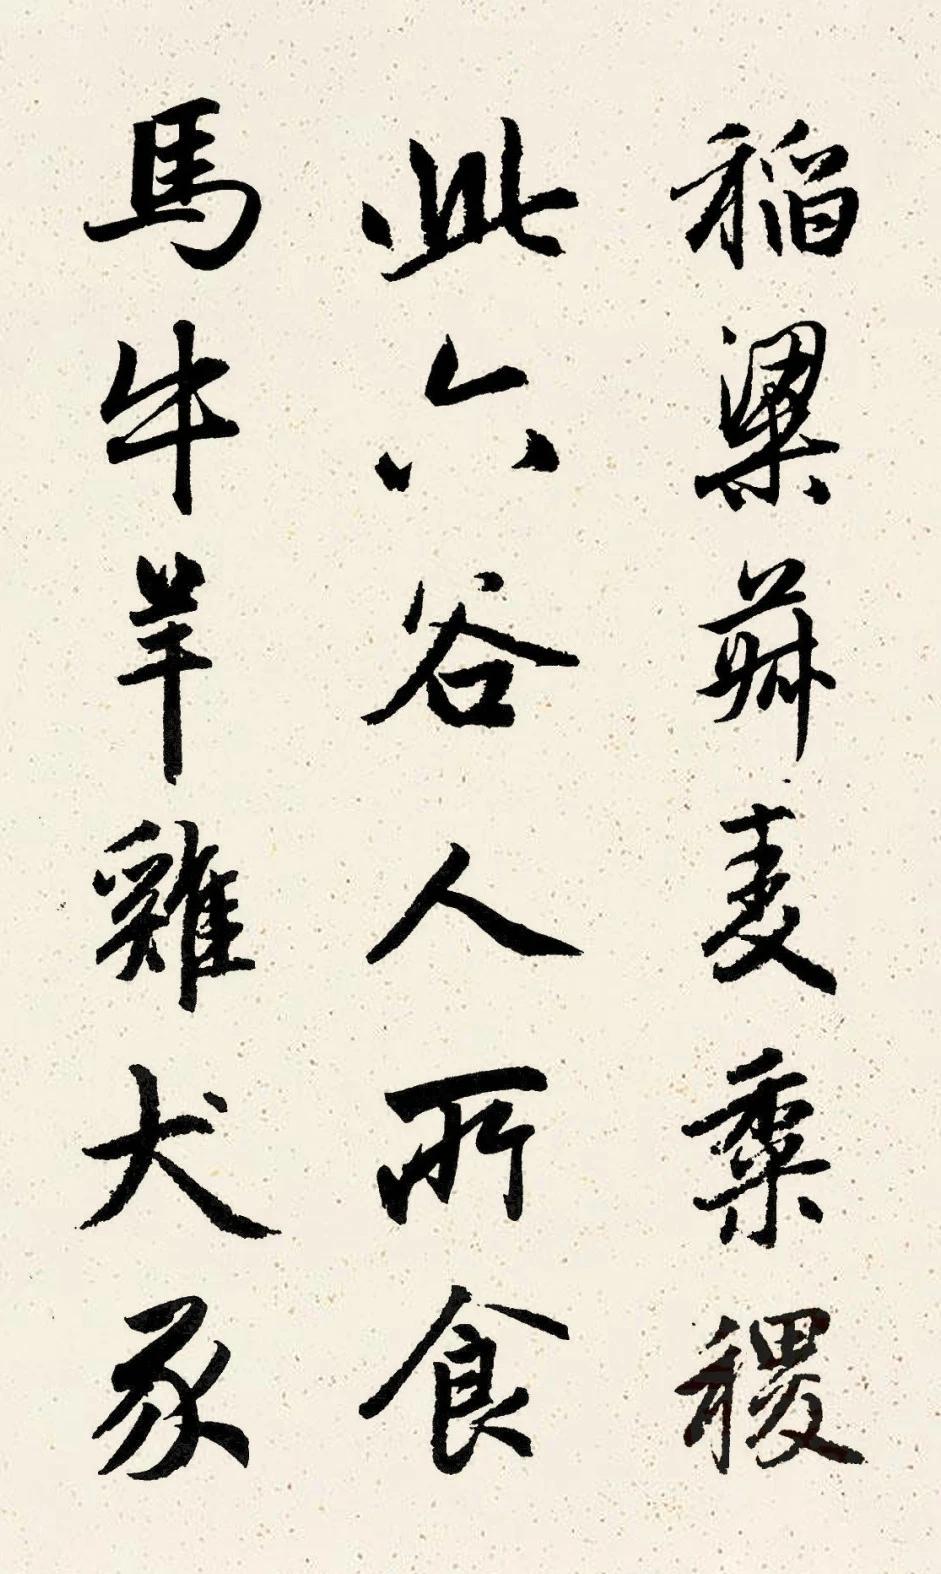 稲粱菽麦黍稷
此六谷人所食
馬牛羊雞犬豕